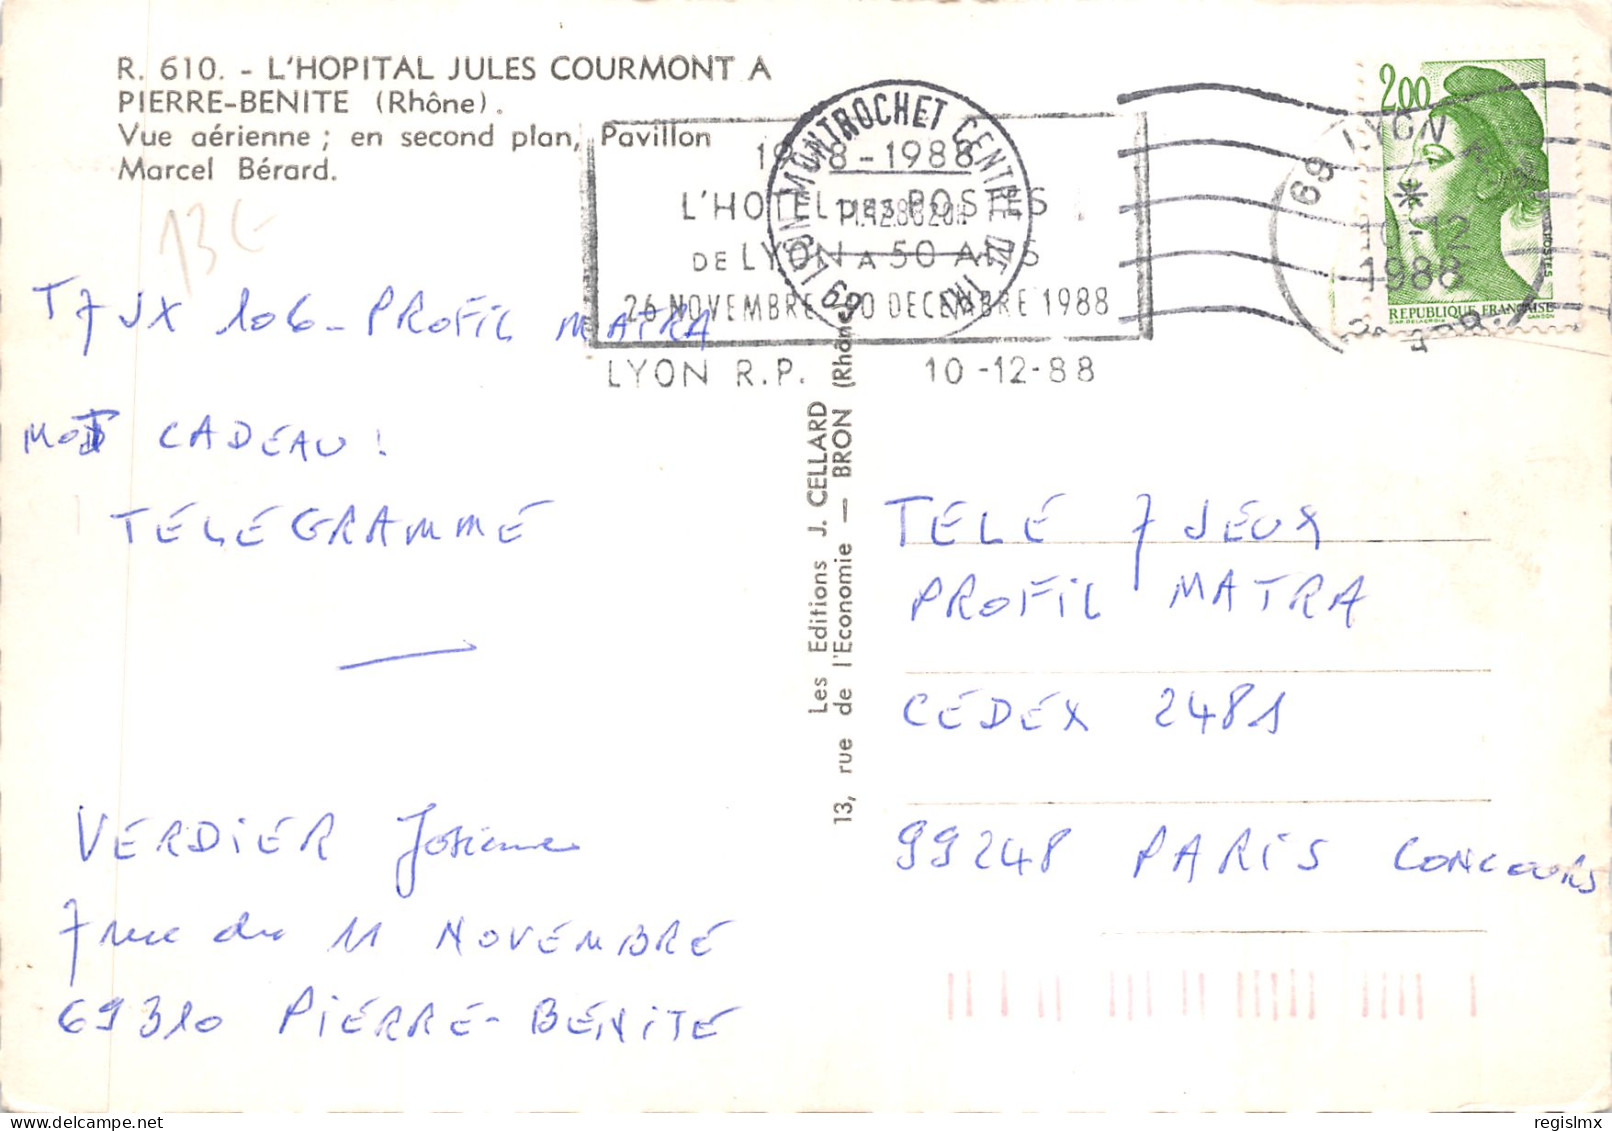 R. 610. - L'HOPITAL JULES COURMONT A
PIERRE-BENITE (Rhône).
Vue aérienne ; en second plan, Pavillon
Marcel Bérard.
13€
T7JX 106 - PROFIL MATRA
MOT CADEAU !
TÉLÉGRAMME
VERDIER Josienne
7 rue du 11 NOVEMBRE
69310 PIERRE-BÉNITE
1938-1988
L'HOTEL DES POSTES
DE LYON A 50 ANS
26 NOVEMBRE 10 DECEMBRE 1988
LYON R.P. 10-12-88
69 LYON MONTROCHET CENTRE DE TRI
69 LYON
10-12
1988
2,00
POSTES
REPUBLIQUE FRANÇAISE
D'AP. DELACROIX GANDON
Les Editions J. CELLARD
13, rue de l'Economie — BRON (Rhône)
TÉLÉ 7 JEUX
PROFIL MATRA
CEDEX 2481
99248 PARIS CONCOURS
regislmx
delcampe.net